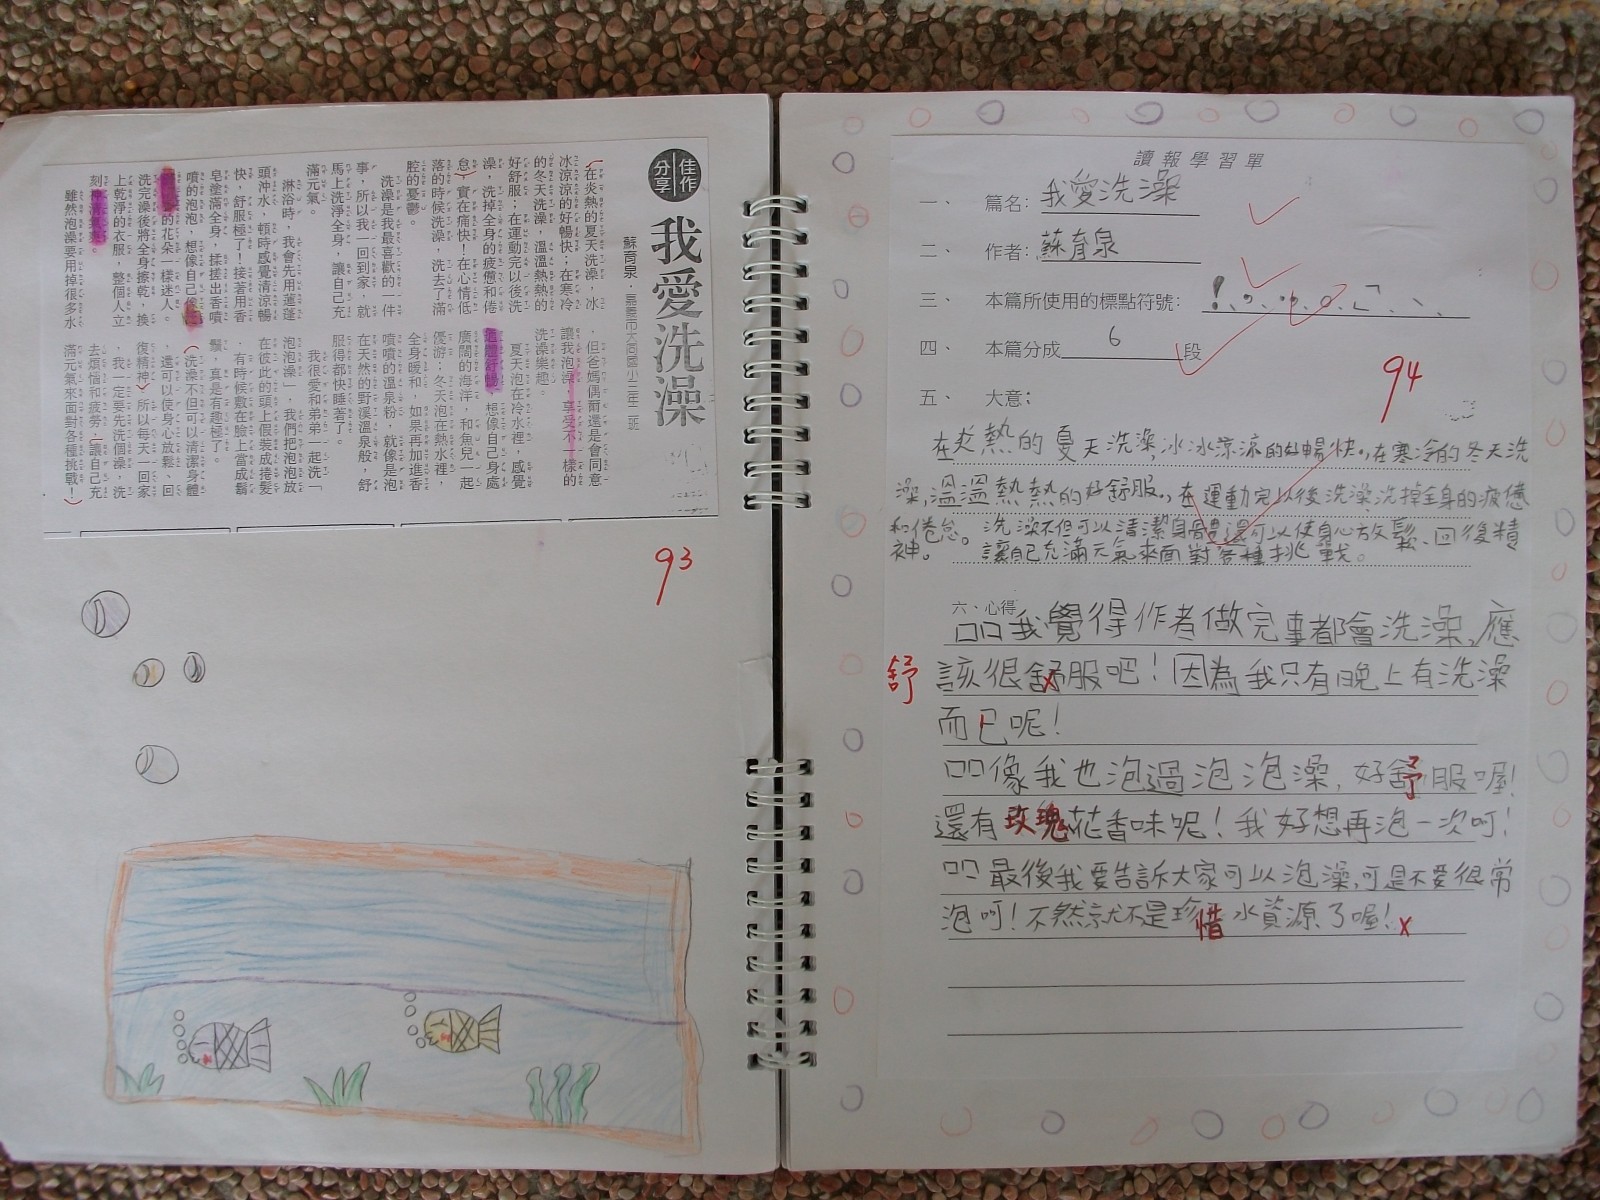 佳作分享
我愛洗澡
蘇育泉·嘉義市大同國小三年二班
（在炎熱的夏天洗澡，冰
冰涼涼的好暢快；在寒冷
的冬天洗澡，溫溫熱熱的
好舒服；在運動完以後洗
澡，洗掉全身的疲憊和倦
怠）實在痛快！在心情低
落的時候洗澡，洗去了滿
腔的憂鬱。
洗澡是我最喜歡的一件
事，所以我一回到家，就
馬上洗淨全身，讓自己充
滿元氣。
淋浴時，我會先用蓮蓬
頭沖水，頓時感覺清涼暢
快，舒服極了！接著用香
皂塗滿全身，搓搓出香噴
噴的泡泡，想像自己像
的花朵一樣迷人。
洗完澡後將全身擦乾，換
上乾淨的衣服，整個人立
刻神清氣爽。
雖然泡澡要用掉很多水
，但爸媽偶爾還是會同意
讓我泡澡，享受不一樣的
洗澡樂趣。
夏天泡在冷水裡，感覺
通體舒暢，想像自己身處
廣闊的海洋，和魚兒一起
優游；冬天泡在熱水裡，
全身暖和，如果再加進香
噴噴的溫泉粉，就像是泡
在天然的野溪溫泉般，舒
服得都快睡著了。
我很愛和弟弟一起洗「
泡泡澡」，我們把泡泡放
在彼此的頭上假裝成捲髮
，有時候敷在臉上當成鬍
鬚，真是有趣極了。
（洗澡不但可以清潔身體
，還可以使身心放鬆、回
復精神）所以每天一回家
，我一定要先洗個澡，洗
去煩惱和疲勞，（讓自己充
滿元氣來面對各種挑戰！）
93
讀報學習單
一、篇名：我愛洗澡
二、作者：蘇育泉
三、本篇所使用的標點符號：
四、本篇分成6段
94
五、大意：
在炎熱的夏天洗澡，冰冰涼涼的好暢快。，在寒冷的冬天洗
澡，溫溫熱熱的好舒服。，在運動完以後洗澡洗掉全身的疲憊
和倦怠。洗澡不但可以清潔身體還可以使身心放鬆、回復精
神。讓自己充滿元氣來面對各種挑戰。
六、心得
口口我覺得作者做完事都會洗澡，應
舒
該很舒服吧！因為我只有晚上有洗澡
而已呢！
口口像我也泡過泡泡澡，好舒服喔！
還有玫瑰花香味呢！我好想再泡一次呵！
口口最後我要告訴大家可以泡澡，可是不要很常
泡呵！不然就不是珍惜水資源了喔！